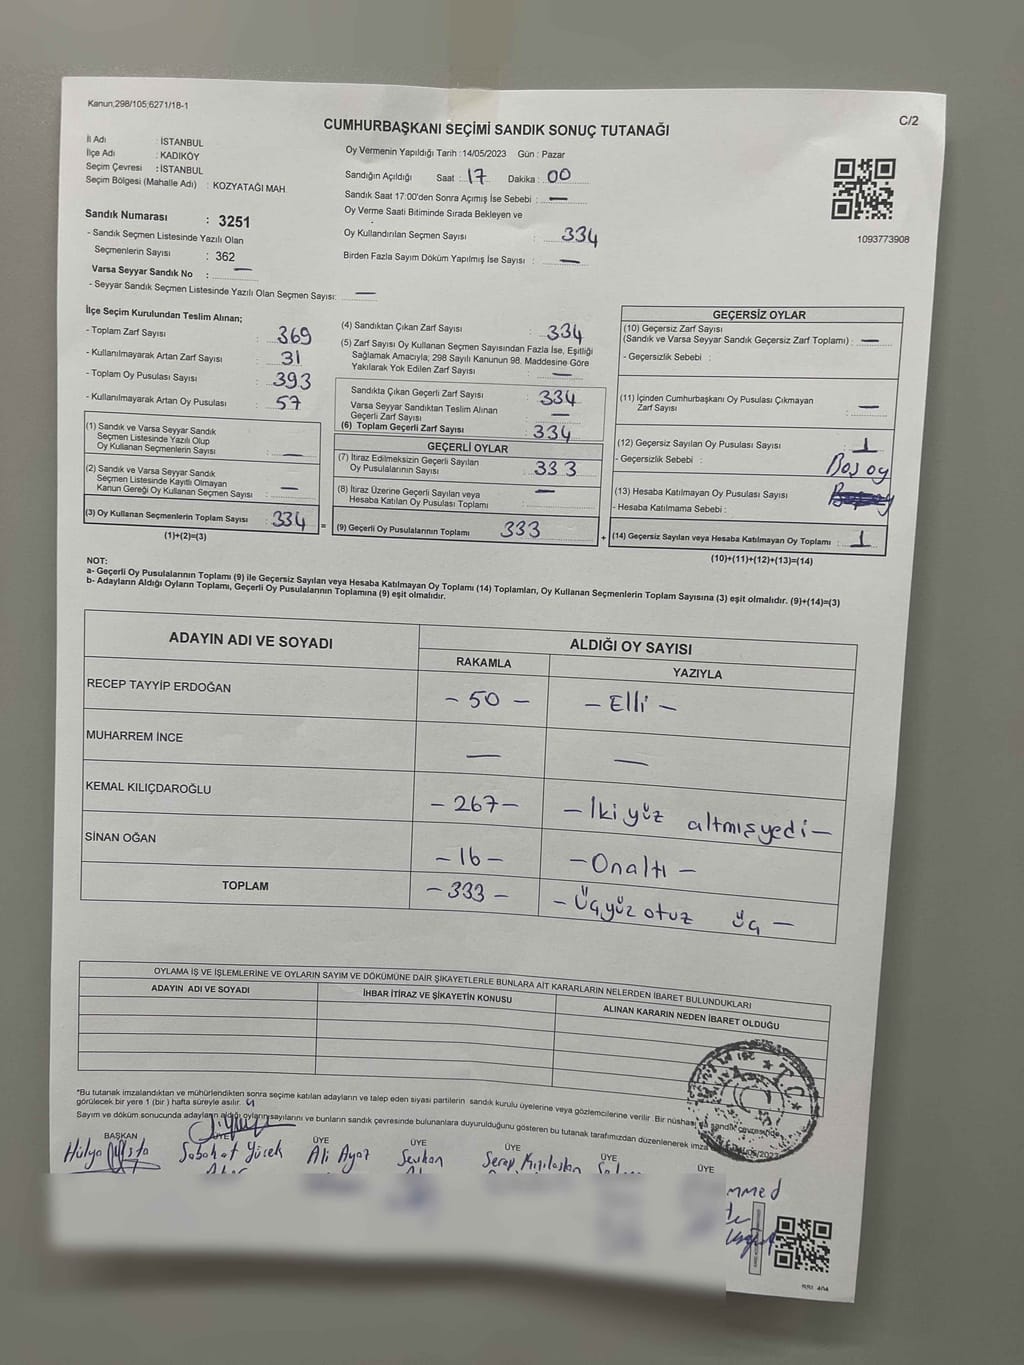 Kanun,298/105,6271/18-1
C/2
CUMHURBAŞKANI SEÇİMİ SANDIK SONUÇ TUTANAĞI
İl Adı : İSTANBUL
İlçe Adı : KADIKÖY
Seçim Çevresi : İSTANBUL
Seçim Bölgesi (Mahalle Adı) : KOZYATAĞI MAH.
Sandık Numarası : 3251
- Sandık Seçmen Listesinde Yazılı Olan
Seçmenlerin Sayısı : 362
Varsa Seyyar Sandık No : —
- Seyyar Sandık Seçmen Listesinde Yazılı Olan Seçmen Sayısı: —
Oy Vermenin Yapıldığı Tarih : 14/05/2023 Gün : Pazar
Sandığın Açıldığı Saat : 17 Dakika : 00
Sandık Saat 17:00'den Sonra Açımış İse Sebebi : —
Oy Verme Saati Bitiminde Sırada Bekleyen ve
Oy Kullandırılan Seçmen Sayısı : 334
Birden Fazla Sayım Döküm Yapılmış İse Sayısı : —
1093773908
İlçe Seçim Kurulundan Teslim Alınan;
- Toplam Zarf Sayısı : 369
- Kullanılmayarak Artan Zarf Sayısı : 31
- Toplam Oy Pusulası Sayısı : 393
- Kullanılmayarak Artan Oy Pusulası : 57
(1) Sandık ve Varsa Seyyar Sandık
Seçmen Listesinde Yazılı Olup
Oy Kullanan Seçmenlerin Sayısı : —
(2) Sandık ve Varsa Seyyar Sandık
Seçmen Listesinde Kayıtlı Olmayan
Kanun Gereği Oy Kullanan Seçmen Sayısı : —
(3) Oy Kullanan Seçmenlerin Toplam Sayısı : 334 =
(1)+(2)=(3)
(4) Sandıktan Çıkan Zarf Sayısı : 334
(5) Zarf Sayısı Oy Kullanan Seçmen Sayısından Fazla İse, Eşitliği
Sağlamak Amacıyla; 298 Sayılı Kanunun 98. Maddesine Göre
Yakılarak Yok Edilen Zarf Sayısı : —
Sandıkta Çıkan Geçerli Zarf Sayısı : 334
Varsa Seyyar Sandıktan Teslim Alınan
Geçerli Zarf Sayısı : —
(6) Toplam Geçerli Zarf Sayısı : 334
GEÇERLİ OYLAR
(7) İtiraz Edilmeksizin Geçerli Sayılan
Oy Pusulalarının Sayısı : 333
(8) İtiraz Üzerine Geçerli Sayılan veya
Hesaba Katılan Oy Pusulası Toplamı : —
(9) Geçerli Oy Pusulalarının Toplamı 333 +
GEÇERSİZ OYLAR
(10) Geçersiz Zarf Sayısı
(Sandık ve Varsa Seyyar Sandık Geçersiz Zarf Toplamı) : —
- Geçersizlik Sebebi :
(11) İçinden Cumhurbaşkanı Oy Pusulası Çıkmayan
Zarf Sayısı : —
(12) Geçersiz Sayılan Oy Pusulası Sayısı : 1
- Geçersizlik Sebebi : Boş oy
(13) Hesaba Katılmayan Oy Pusulası Sayısı
- Hesaba Katılmama Sebebi :
(14) Geçersiz Sayılan veya Hesaba Katılmayan Oy Toplamı : 1
(10)+(11)+(12)+(13)=(14)
NOT:
a- Geçerli Oy Pusulalarının Toplamı (9) ile Geçersiz Sayılan veya Hesaba Katılmayan Oy Toplamı (14) Toplamları, Oy Kullanan Seçmenlerin Toplam Sayısına (3) eşit olmalıdır. (9)+(14)=(3)
b- Adayların Aldığı Oyların Toplamı, Geçerli Oy Pusulalarının Toplamına (9) eşit olmalıdır.
ADAYIN ADI VE SOYADI ALDIĞI OY SAYISI
RAKAMLA YAZIYLA
RECEP TAYYİP ERDOĞAN – 50 – – Elli –
MUHARREM İNCE — —
KEMAL KILIÇDAROĞLU – 267 – – İkiyüz altmışyedi –
SİNAN OĞAN – 16 – – Onaltı –
TOPLAM – 333 – – Üçyüz otuz üç –
OYLAMA İŞ VE İŞLEMLERİNE VE OYLARIN SAYIM VE DÖKÜMÜNE DAİR ŞİKAYETLERLE BUNLARA AİT KARARLARIN NELERDEN İBARET BULUNDUKLARI
ADAYIN ADI VE SOYADI İHBAR İTİRAZ VE ŞİKAYETİN KONUSU ALINAN KARARIN NEDEN İBARET OLDUĞU
*Bu tutanak imzalandıktan ve mühürlendikten sonra seçime katılan adayların ve talep eden siyasi partilerin sandık kurulu üyelerine veya gözlemcilerine verilir. Bir nüshası da sandık çevresinde
görülecek bir yere 1 (bir) hafta süreyle asılır.
Sayım ve döküm sonucunda adayların aldığı oyların sayılarını ve bunların sandık çevresinde bulunanlara duyurulduğunu gösteren bu tutanak tarafımızdan düzenlenerek imza
BAŞKAN ÜYE ÜYE ÜYE ÜYE ÜYE ÜYE
Hülya Usta Sabahat Yürek Ali Ayaz Sevkan Serap Kızılaslan
mmed